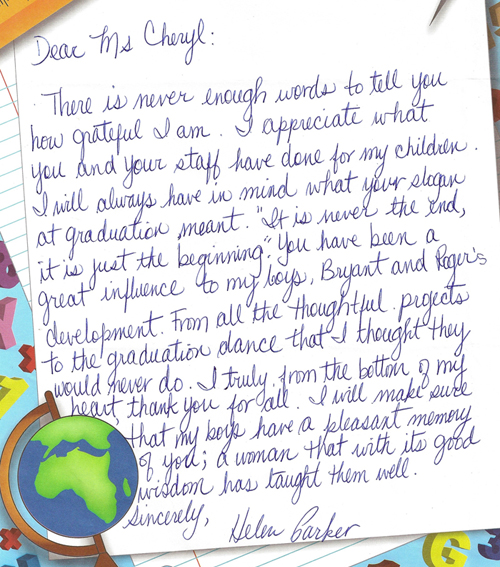 Dear Ms Cheryl:
There is never enough words to tell you
how grateful I am. I appreciate what
you and your staff have done for my children.
I will always have in mind what your slogan
at graduation meant. "It is never the end,
it is just the beginning". You have been a
great influence to my boys, Bryant and Roger's
development. From all the thoughtful projects
to the graduation dance that I thought they
would never do. I truly, from the bottom of my
heart, thank you for all. I will make sure
that my boys have a pleasant memory
of you; a woman that with its good
wisdom has taught them well.
Sincerely,
Helen Parker